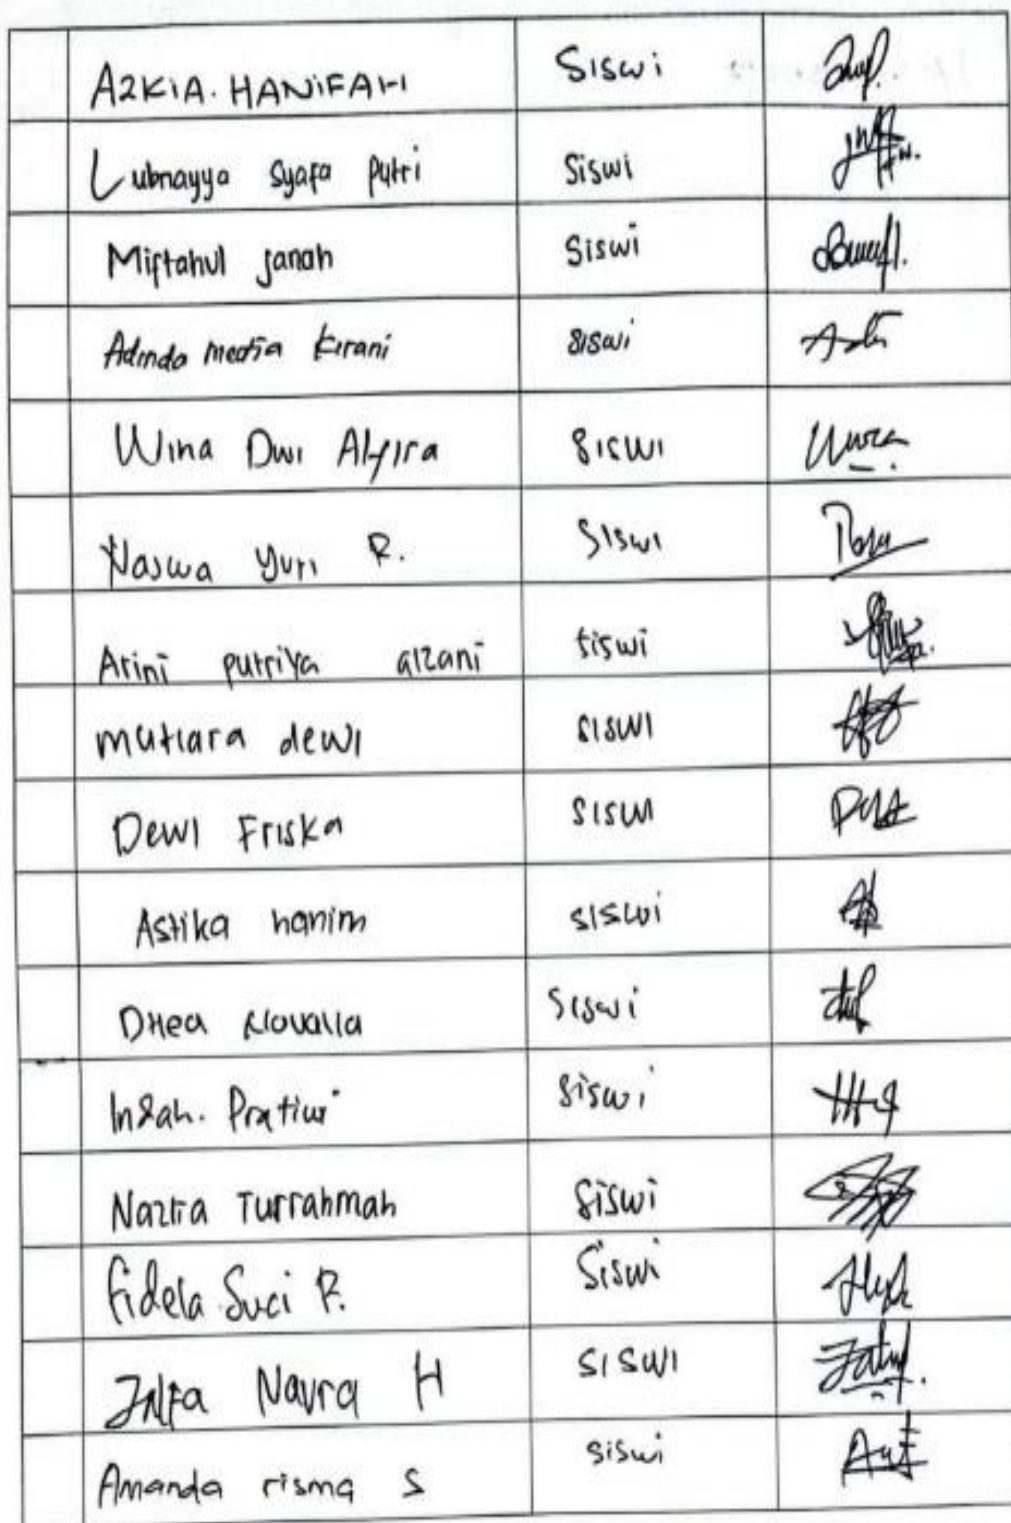 AZKIA. HANIFAH Siswi
Lubnayya syafa putri Siswi
Miftahul janah Siswi
Adinda media kirani siswi
Wina Dwi Alyira siswi
Naswa Yuri R. Siswi
Arini putriya alzani siswi
mutiara dewi siswi
Dewi Friska siswi
Astika hanim siswi
DHea Novalia Siswi
Indah. Pratiwi siswi
Nazlia Turrahmah Siswi
fidela Suci R. Siswi
Zalfa Naura H siswi
Amanda risma S siswi